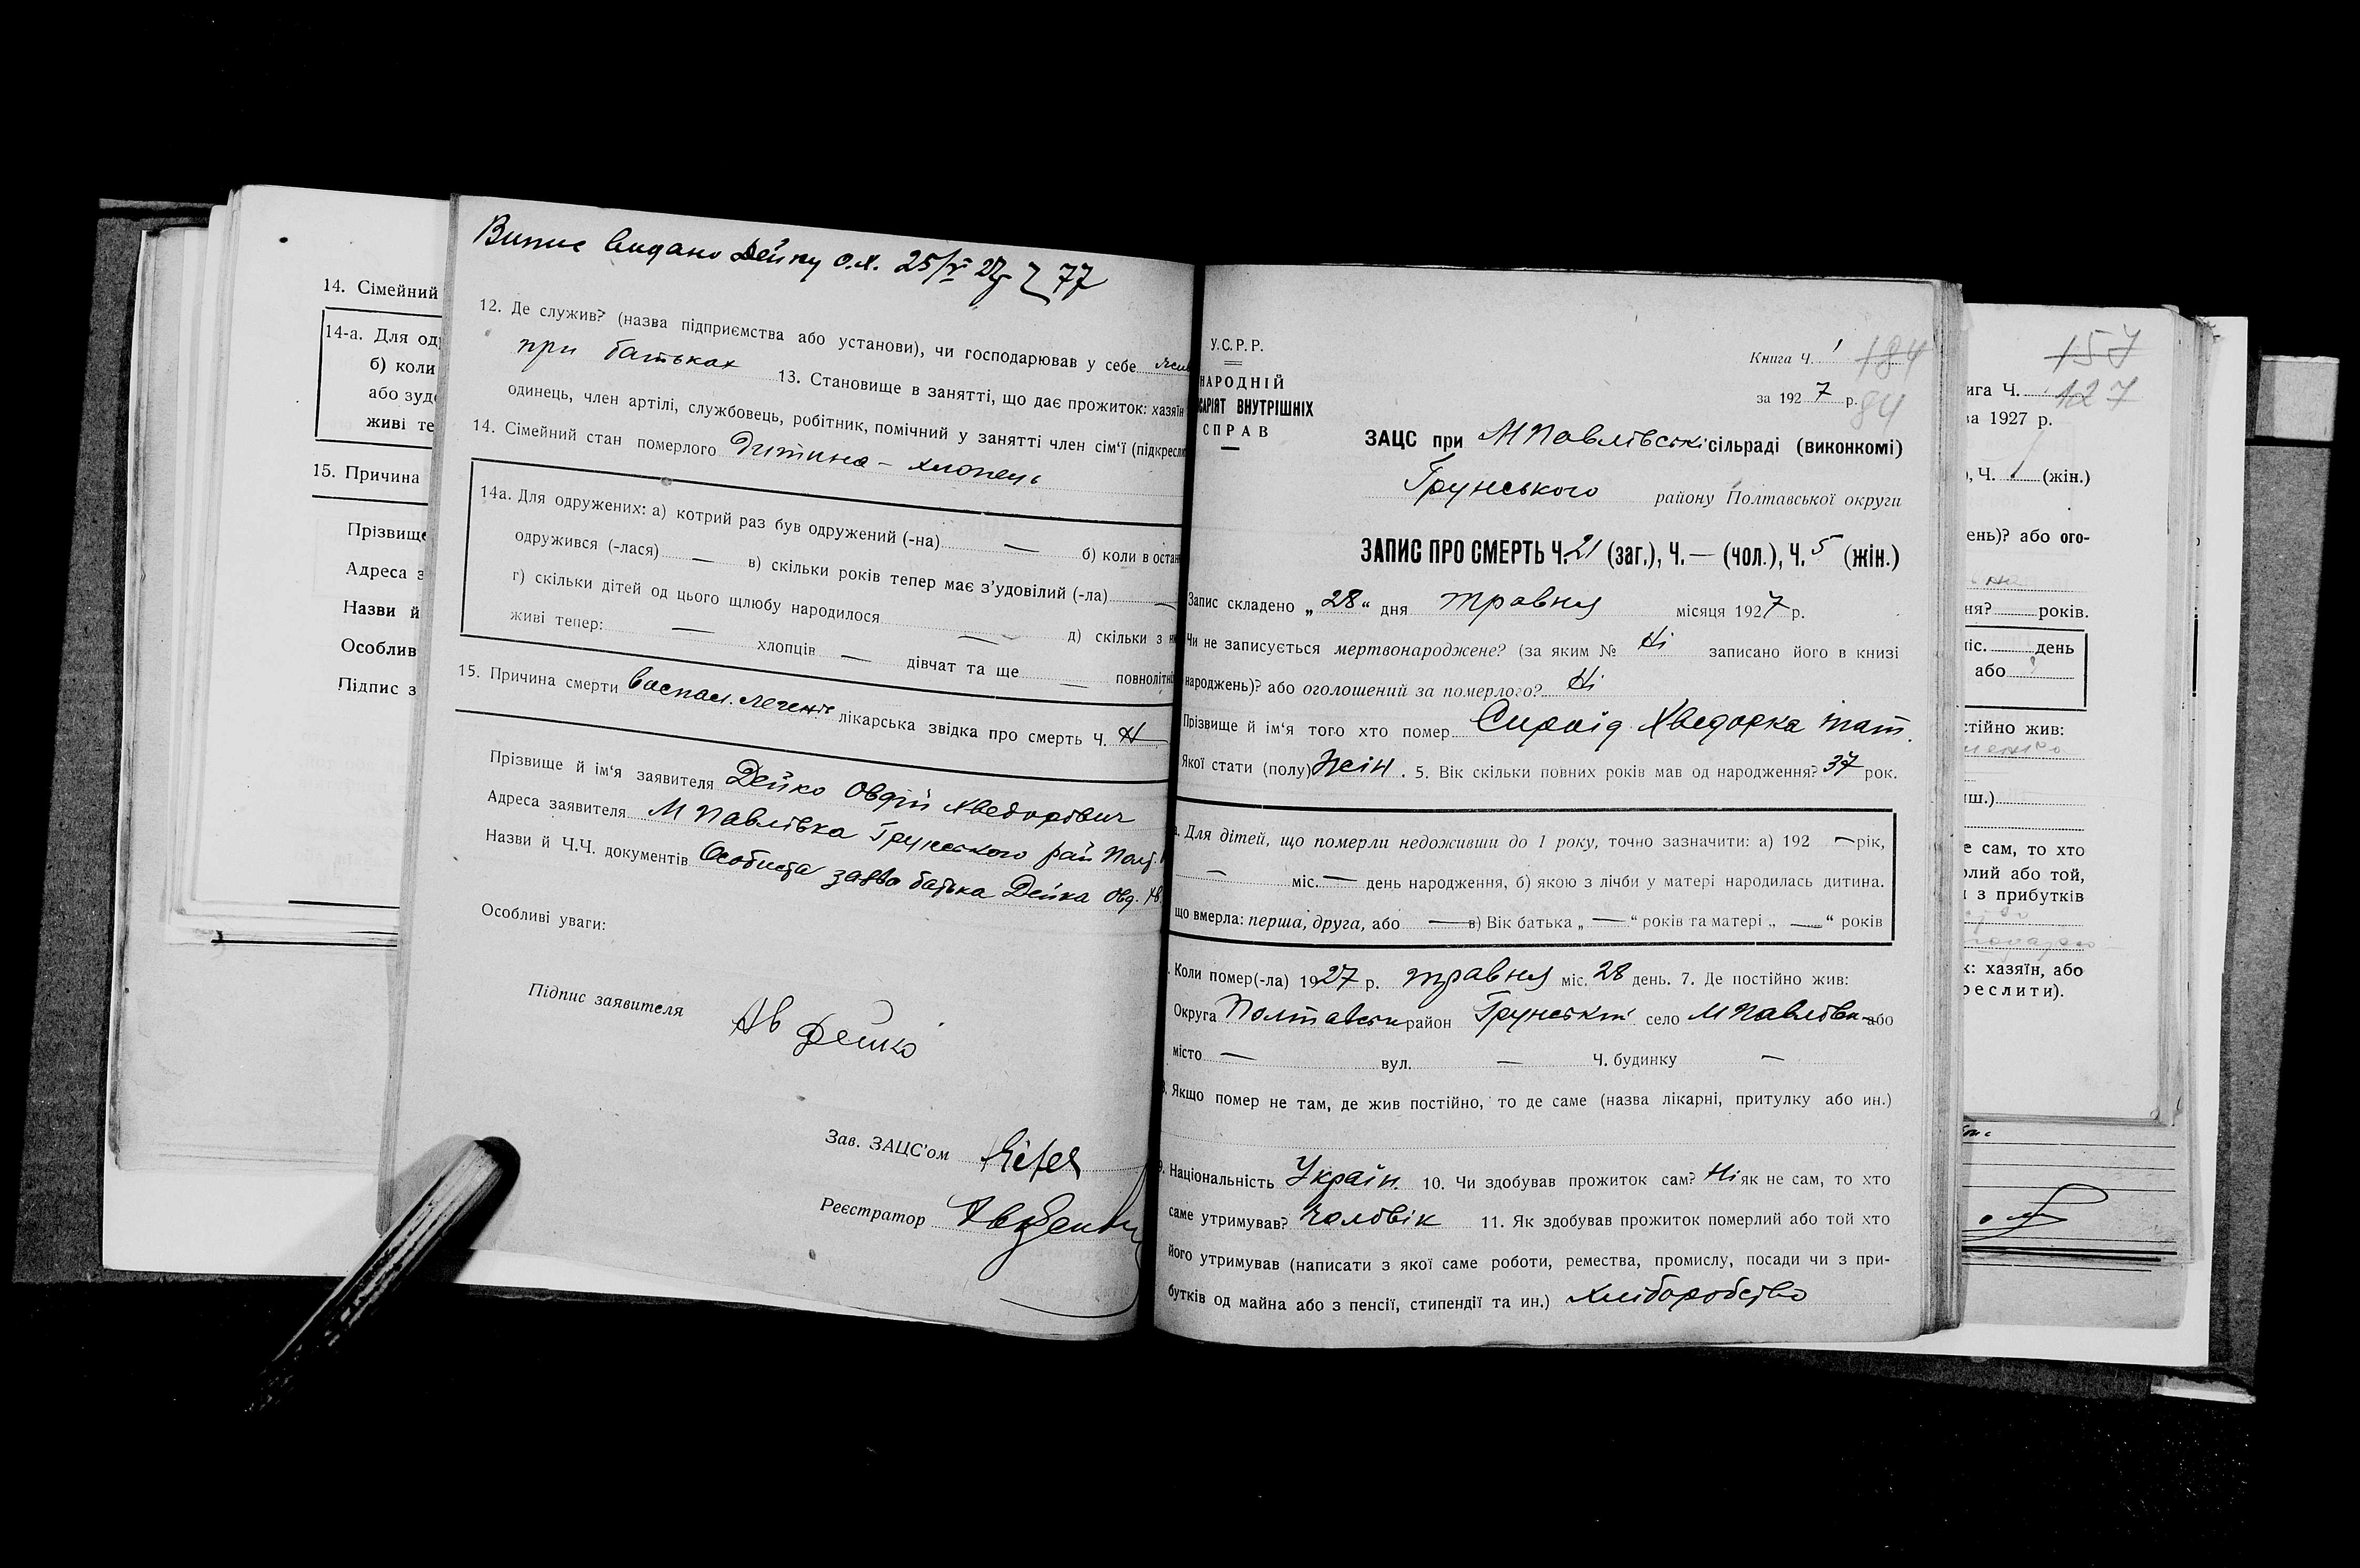 14. Сімейний
14-а. Для од
б) коли
або зуд
живі те
15. Причина
Прізвище
Адреса з
Назви й
Особлив
Підпис з
Випис видано Дейку О.Х. 25/V 27р 77
12. Де служив? (назва підприємства або установи), чи господарював у себе
при батьках 13. Становище в занятті, що дає прожиток: хазяїн
одинець, член артілі, службовець, робітник, помічний у занятті член сім'ї (підкресли
14. Сімейний стан померлого Дитина – хлопець
14а. Для одружених: а) котрий раз був одружений (-на) — б) коли в остан
одружився (-лася) — в) скільки років тепер має з'удовілий (-ла) —
г) скільки дітей од цього щлюбу народилося — д) скільки з ни
живі тепер: — хлопців — дівчат та ще — повнолітні
15. Причина смерти воспал. легенів лікарська звідка про смерть Ч. Н
Прізвище й ім'я заявителя Дейко Овдій Хведорович
Адреса заявителя М Павлівка Грунського рай Полт.
Назви й Ч.Ч. документів Особиста заява батька Дейка Овд. Хв
Особливі уваги:
Підпис заявителя Ав Дейко
Зав. ЗАЦС'ом
Реєстратор
У.С.Р.Р.
НАРОДНІЙ
САРІЯТ ВНУТРІШНІХ
СПРАВ
Книга Ч. 1 184
за 1927 р. 84
ЗАЦС при МПавлівські сільраді (виконкомі)
Грунського району Полтавської округи
ЗАПИС ПРО СМЕРТЬ Ч. 21 (заг.), Ч. — (чол.), Ч. 5 (жін.)
Запис складено „28" дня травня місяця 1927 р.
Чи не записується мертвонароджене? (за яким № Ні записано його в книзі
народжень)? або оголошений за померлого? Ні
Прізвище й ім'я того хто помер Сироїд Хведорка
Якої стати (полу) Жін. 5. Вік скільки повних років мав од народження? 37 рок.
а. Для дітей, що померли недоживши до 1 року, точно зазначити: а) 192 — рік,
— міс. — день народження, б) якою з лічби у матері народилась дитина.
що вмерла: перша, друга, або — в) Вік батька „ — " років та матері „ — " років
. Коли помер(-ла) 1927 р. травня міс. 28 день. 7. Де постійно жив:
Округа Полтавськ район Грунський село МПавлівка або
місто — вул. — Ч. будинку —
8. Якщо помер не там, де жив постійно, то де саме (назва лікарні, притулку або ин.)
9. Національність Україн. 10. Чи здобував прожиток сам? Ні як не сам, то хто
саме утримував? Чоловік 11. Як здобував прожиток померлий або той хто
його утримував (написати з якої саме роботи, ремества, промислу, посади чи з при-
бутків од майна або з пенсії, стипендії та ин.) Хліборобство
157
ига Ч. 127
за 1927 р.
), Ч. 1 (жін.)
ень)? або ого-
ня? років.
міс. день
або
стійно жив:
иш.)
е сам, то хто
олий або той,
и з прибутків
к: хазяїн, або
реслити).